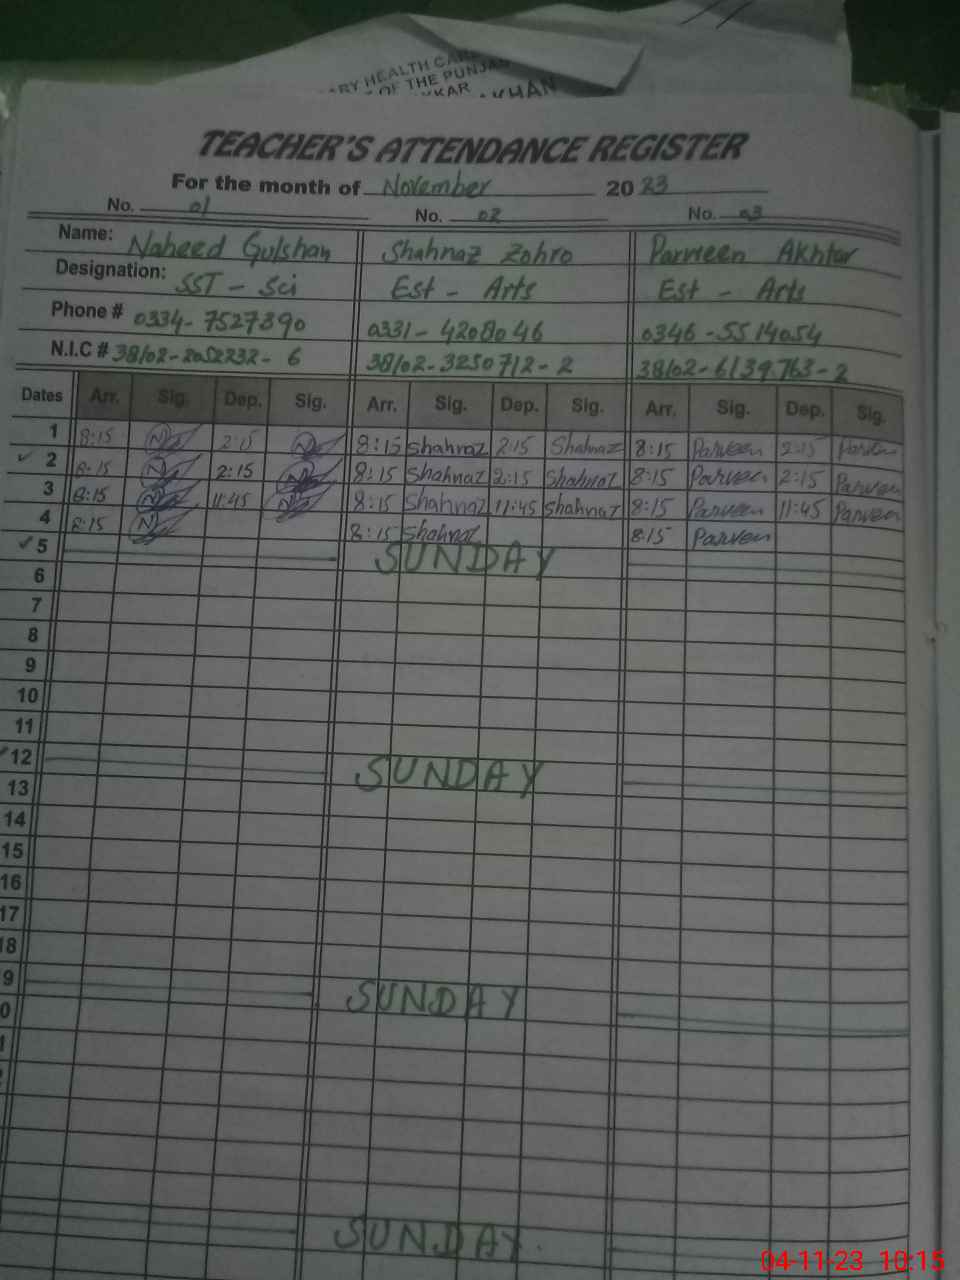 RY HEALTH CAR
OF THE PUNJA
KKAR
KHAN
TEACHER'S ATTENDANCE REGISTER
For the month of November 2023
No. 01 No. 02 No. 03
Name: Naheed Gulshan Shahnaz Zohro Parveen Akhtar
Designation: SST - Sci Est - Arts Est - Arts
Phone # 0334-7527390 0331-4208046 0346-5514054
N.I.C # 38102-2052232-6 38102-3250712-2 38102-6139763-2
Dates Arr. Sig. Dep. Sig. Arr. Sig. Dep. Sig. Arr. Sig. Dep. Sig.
1 8:15 N 2:15 N 8:15 Shahnaz 2:15 Shahnaz 8:15 Parveen 2:15 Parveen
2 8:15 N 2:15 8:15 Shahnaz 2:15 Shahnaz 8:15 Parveen 2:15 Parveen
3 8:15 N 11:45 N 8:15 Shahnaz 11:45 Shahnaz 8:15 Parveen 11:45 Parveen
4 8:15 N 8:15 Shahnaz 8:15 Parveen
5 SUNDAY
6
7
8
9
10
11
12 SUNDAY
13
14
15
16
17
18
9 SUNDAY
0
1
2
SUNDAY
04-11-23 10:15